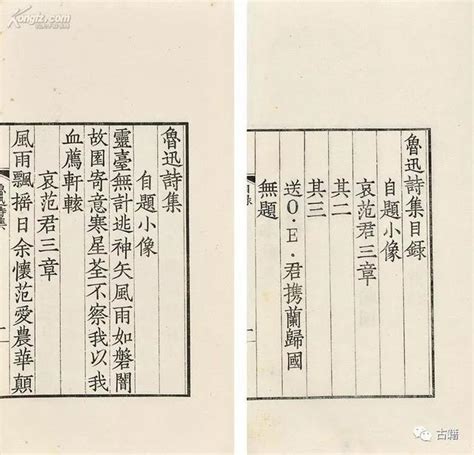 魯迅詩集目録
自題小像
哀范君三章
其二
其三
送O·E·君携蘭歸國
無題
目録
一
魯迅詩集
自題小像
靈臺無計逃神矢風雨如磐闇
故園寄意寒星荃不察我以我
血薦軒轅
哀范君三章
風雨飄搖日余懷范愛農華顛
魯迅詩集
一
Kongfz.com
古籍